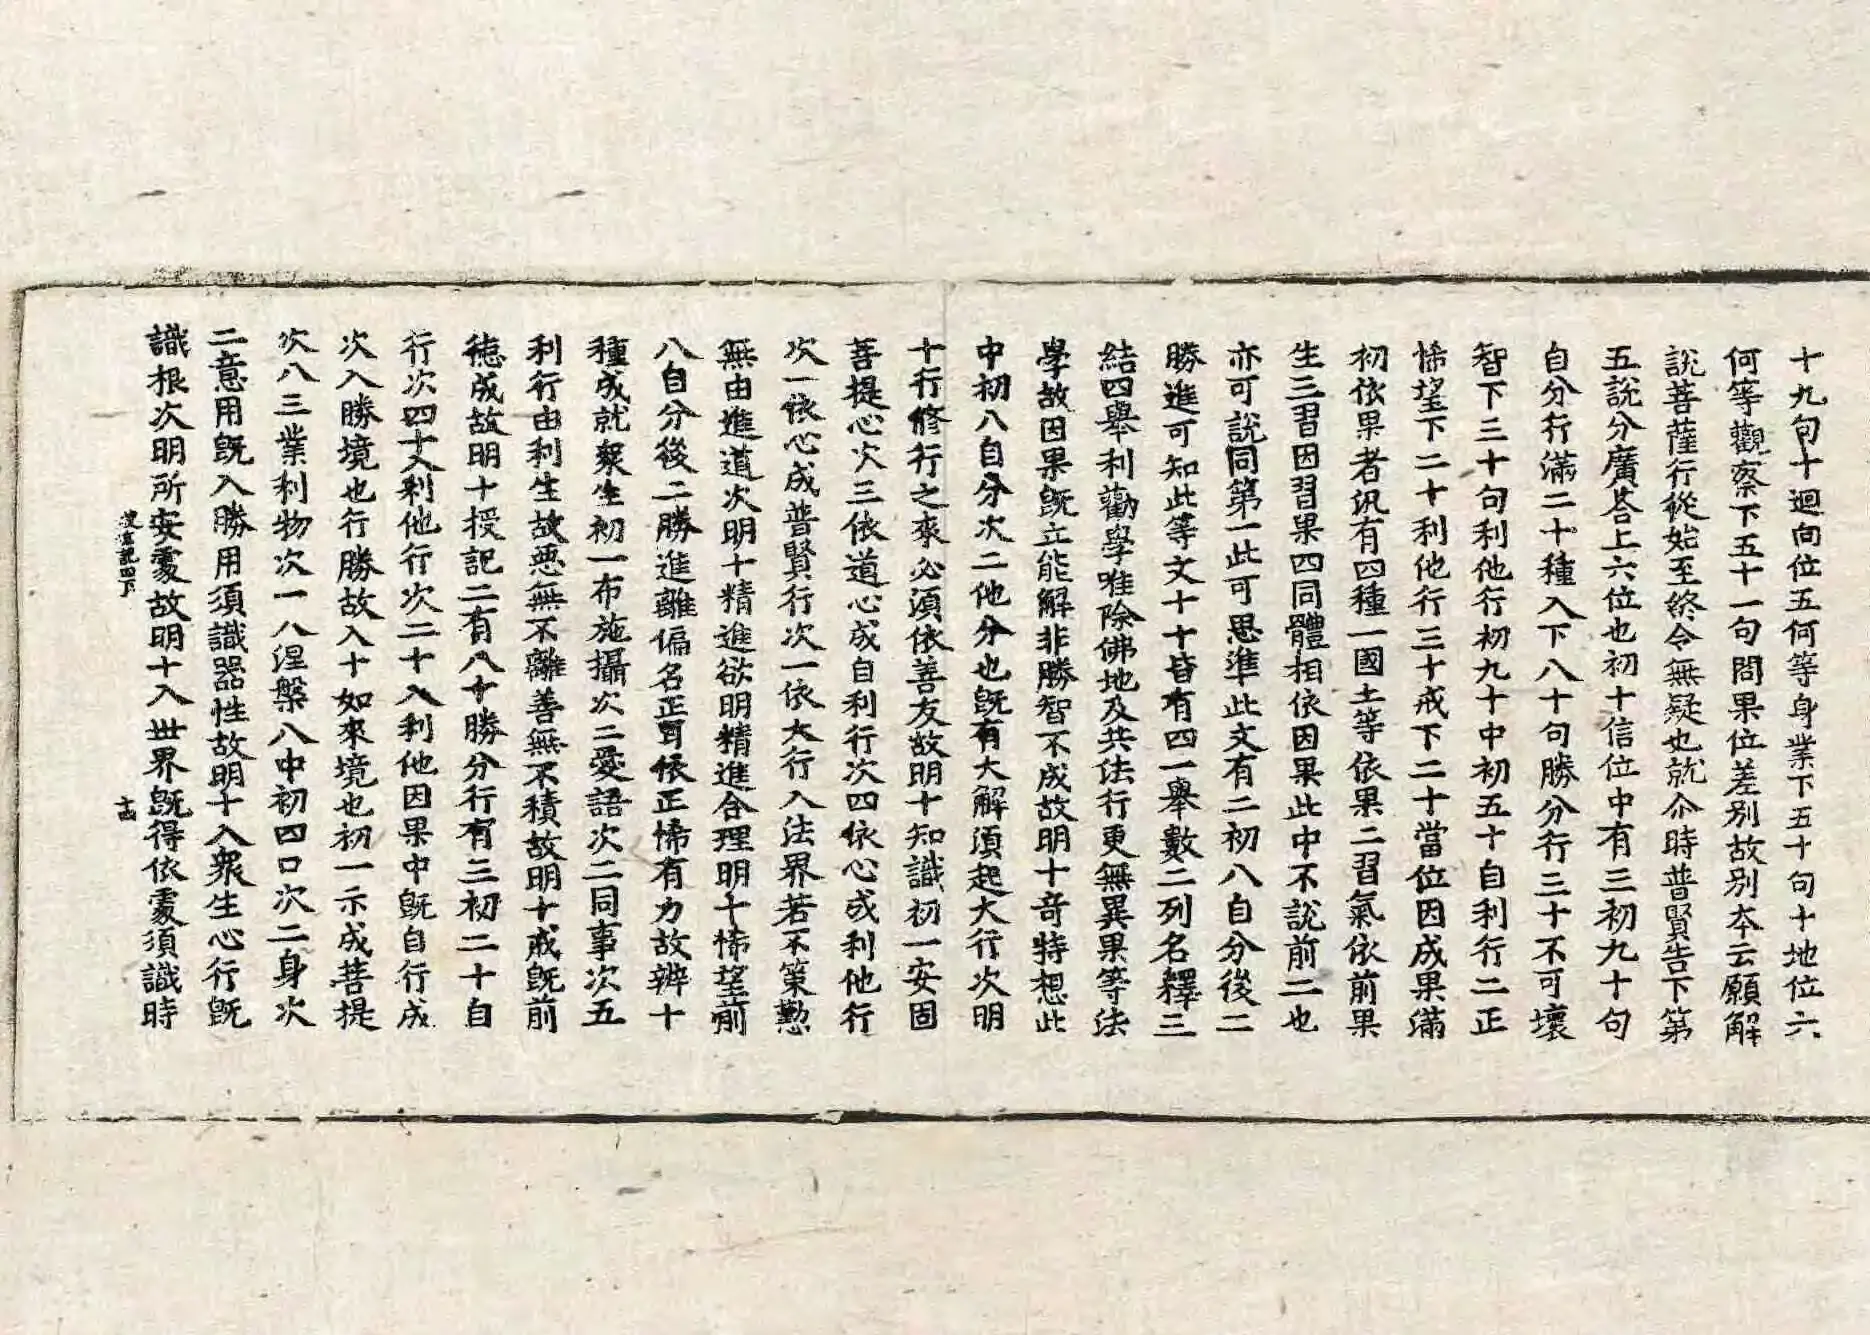 十九句十迴向位五何等身業下五十句十地位六
何等觀察下五十一句問果位差別故別本云願解
說菩薩行從始至終令無疑也就尒時普賢告下第
五說分廣荅上六位也初十信位中有三初九十句
自分行滿二十種入下八十句勝分行三十不可壞
智下三十句利他行初九十中初五十自利行二正
悕望下二十利他行三十戒下二十當位因成果滿
初依果者汎有四種一國土等依果二習氣依前果
生三習因習果四同體相依因果此中不說前二也
亦可說同第一此可思準此文有二初八自分後二
勝進可知此等文十十皆有四一舉數二列名釋三
結四舉利勸學唯除佛地及共法行更無異果等法
學故因果旣立能解非勝智不成故明十竒特想此
中初八自分次二他分也旣有大解須起大行次明
十行修行之來必須依善友故明十知識初一安固
菩提心次三依道心成自利行次四依心成利他行
次一依心成普賢行次一依大行入法界若不策懃
無由進道次明十精進欲明精進合理明十悕望前
八自分後二勝進離偏名正耳依正悕有力故辨十
種成就衆生初一布施攝次二愛語次二同事次五
利行由利生故惡無不離善無不積故明十戒旣前
德成故明十授記二有八十勝分行有三初二十自
行次四十入利他行次二十入利他因果中旣自行成
次入勝境也行勝故入十如來境也初一示成菩提
次八三業利物次一八涅槃八中初四口次二身次
二意用旣入勝用須識器性故明十入衆生心行旣
識根次明所安處故明十入世界旣得依處須識時
記四下 十古